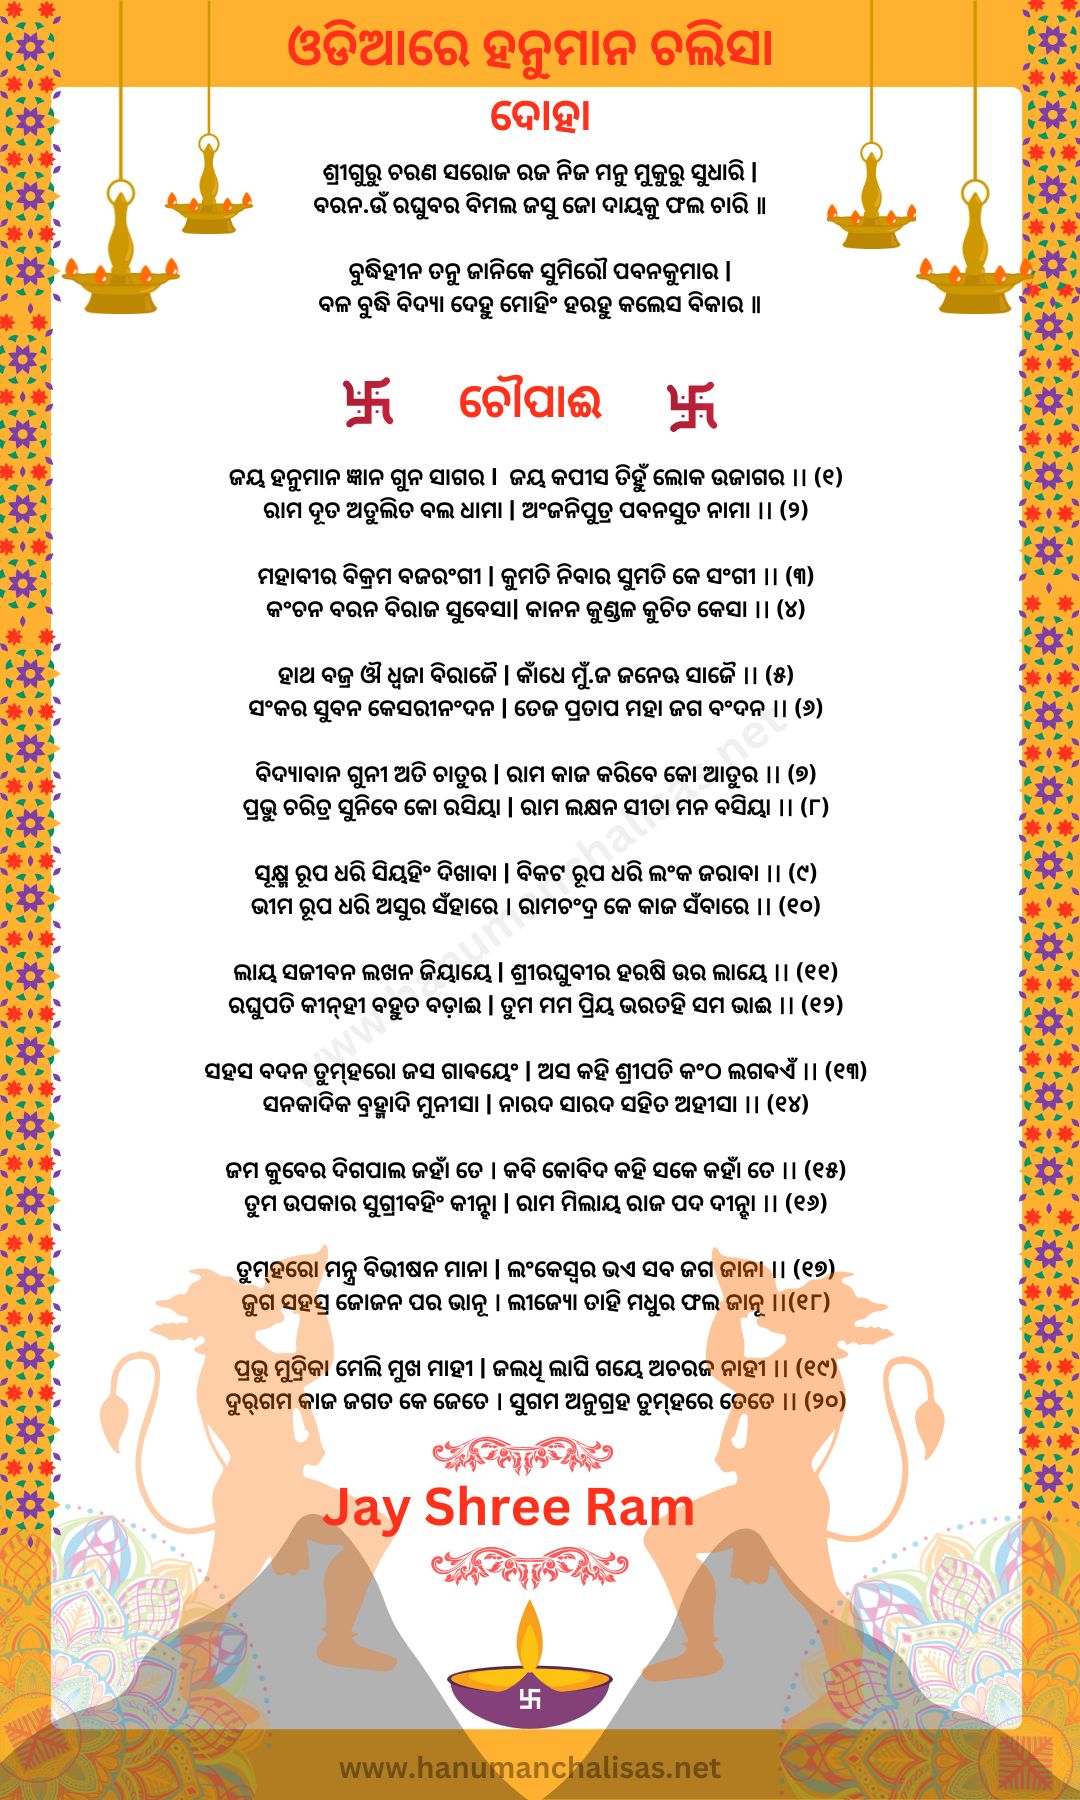 ଓଡିଆରେ ହନୁମାନ ଚଲିସା
ଦୋହା
ଶ୍ରୀଗୁରୁ ଚରଣ ସରୋଜ ରଜ ନିଜ ମନୁ ମୁକୁରୁ ସୁଧାରି |
ବରନ.ଉଁ ରଘୁବର ବିମଲ ଜସୁ ଜୋ ଦାୟକୁ ଫଲ ଚାରି ॥
ବୁଦ୍ଧିହୀନ ତନୁ ଜାନିକେ ସୁମିରୌ ପବନକୁମାର |
ବଳ ବୁଦ୍ଧି ବିଦ୍ୟା ଦେହୁ ମୋହିଂ ହରହୁ କଲେସ ବିକାର ॥
卐 ଚୌପାଈ 卐
ଜୟ ହନୁମାନ ଜ୍ଞାନ ଗୁନ ସାଗର । ଜୟ କପୀସ ତିହୁଁ ଲୋକ ଉଜାଗର ।। (୧)
ରାମ ଦୂତ ଅତୁଲିତ ବଲ ଧାମା | ଅଂଜନିପୁତ୍ର ପବନସୁତ ନାମା ।। (୨)
ମହାବୀର ବିକ୍ରମ ବଜରଂଗୀ | କୁମତି ନିବାର ସୁମତି କେ ସଂଗୀ ।। (୩)
କଂଚନ ବରନ ବିରାଜ ସୁବେସା| କାନନ କୁଣ୍ଡଳ କୁଚିତ କେସା ।। (୪)
ହାଥ ବଜ୍ର ଔ ଧ୍ଵଜା ବିରାଜୈ | କାଁଧେ ମୁଁ.ଜ ଜନେଊ ସାଜୈ ।। (୫)
ସଂକର ସୁବନ କେସରୀନଂଦନ | ତେଜ ପ୍ରତାପ ମହା ଜଗ ବଂଦନ ।। (୬)
ବିଦ୍ୟାବାନ ଗୁନୀ ଅତି ଚାତୁର | ରାମ କାଜ କରିବେ କୋ ଆତୁର ।। (୭)
ପ୍ରଭୁ ଚରିତ୍ର ସୁନିବେ କୋ ରସିୟା | ରାମ ଲକ୍ଷନ ସୀତା ମନ ବସିୟା ।। (୮)
ସୂକ୍ଷ୍ମ ରୂପ ଧରି ସିୟହିଂ ଦିଖାବା | ବିକଟ ରୂପ ଧରି ଲଂକ ଜରାବା ।। (୯)
ଭୀମ ରୂପ ଧରି ଅସୁର ସଁହାରେ । ରାମଚଂଦ୍ର କେ କାଜ ସଁବାରେ ।। (୧୦)
ଲାୟ ସଜୀବନ ଲଖନ ଜିୟାୟେ | ଶ୍ରୀରଘୁବୀର ହରଷି ଉର ଲାୟେ ।। (୧୧)
ରଘୁପତି କୀନ୍‌ହୀ ବହୁତ ବଡ଼ାଈ | ତୁମ ମମ ପ୍ରିୟ ଭରତହି ସମ ଭାଈ ।। (୧୨)
ସହସ ବଦନ ତୁମ୍‌ହରୋ ଜସ ଗାଵୟେଂ | ଅସ କହି ଶ୍ରୀପତି କଂଠ ଲଗଵଏଁ ।। (୧୩)
ସନକାଦିକ ବ୍ରହ୍ମାଦି ମୁନୀସା | ନାରଦ ସାରଦ ସହିତ ଅହୀସା ।। (୧୪)
ଜମ କୁବେର ଦିଗପାଲ ଜହାଁ ତେ । କବି କୋବିଦ କହି ସକେ କହାଁ ତେ ।। (୧୫)
ତୁମ ଉପକାର ସୁଗ୍ରୀବହିଂ କୀନ୍ହା | ରାମ ମିଲାୟ ରାଜ ପଦ ଦୀନ୍ହା ।। (୧୬)
ତୁମ୍‌ହରୋ ମନ୍ତ୍ର ବିଭୀଷନ ମାନା | ଲଂକେସ୍ଵର ଭଏ ସବ ଜଗ ଜାନା ।। (୧୭)
ଜୁଗ ସହସ୍ର ଜୋଜନ ପର ଭାନୂ । ଲୀଜ୍ୟୋ ତାହି ମଧୁର ଫଲ ଜାନୂ ।।(୧୮)
ପ୍ରଭୁ ମୁଦ୍ରିକା ମେଲି ମୁଖ ମାହୀ | ଜଲଧି ଲାଘି ଗୟେ ଅଚରଜ ନାହୀ ।। (୧୯)
ଦୁର୍‌ଗମ କାଜ ଜଗତ କେ ଜେତେ । ସୁଗମ ଅନୁଗ୍ରହ ତୁମ୍‌ହରେ ତେତେ ।। (୨୦)
www.hanumanchalisas.net
Jay Shree Ram
卐
www.hanumanchalisas.net